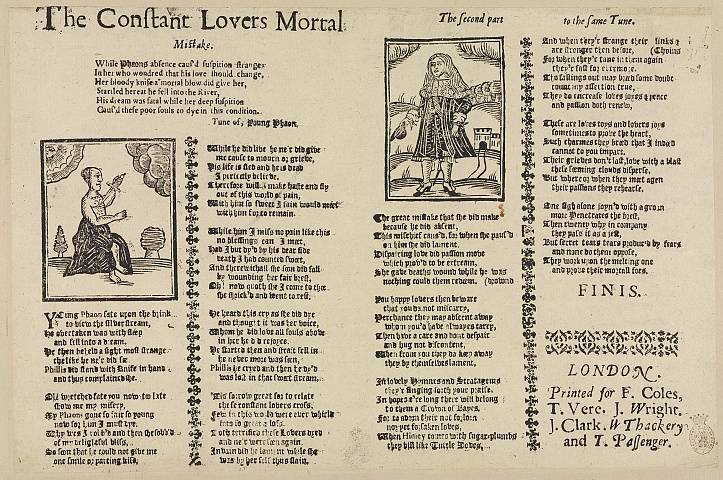 The Constant Lovers Mortal
Mistake.
While Phaons absence caus'd suspition strange
In her who wondred that his love should change,
Her bloody knife a mortal blow did give her,
Startled hereat he fell into the River,
His dream was fatal while her deep suspition
Caus'd these poor souls to dye in this condition.
Tune of, Young Phaon.
Young Phaon sate upon the brink
to view the silver stream,
He overtaken was with sleep
and fell into a dream.
He then beheld a sight most strange
the like he ne'r did see
Phillis did stand with Knife in hand
and thus complain'd she.
now for him I must dye.
So soon that he could not give me
one smile or parting kiss,
While he did live he ne'r did give
me cause to mourn or grieve,
His life is fled and he is dead
I perfectly believe.
Therefore will I make haste and fly
out of this world of pain,
With him so sweet I fain would meet
with him for to remain.
While him I miss no pain like this
no blessings can I meet,
Had I but dy'd by his dear side
death I had counted sweet,
And therewithall she soon did fall
by wounding her fair brest,
Oh! now quoth she I come to thee
she shriek'd and went to rest.
He heard this cry as she did dye
and thought it was her voice,
Whom he did love all souls above
in her he did rejoyce.
He started then and strait fell in
he never more was seen,
Phillis he cryed and then he dy'd
was lost in that sweet stream.
This sorrow great for to relate
these constant lovers cross,
and ne'r were seen again.
was by her self thus slain.
The second part to the same Tune.
The great mistake that she did make
because he did absent,
This mischief caus'd, for when she paus'd
on him she did lament.
Dispairing love did passion move
which prov'd to be extream,
She gave deaths wound while he was
nothing could them redeem. (drownd
You happy lovers then beware
that you do not miscarry,
Perchance they may absent away
whom you'd have alwayes tarry,
Then have a care and dont despair
and hug not discontent,
When from you they do keep away
by themselves lament.
In lovely Hymnes and Stratagems
they're singing forth your praise.
In hopes e're long there will belong
to them a Crown of Bayes,
nor yet forsaken loves,
When Hony comes with sugar-plumbs
they bill like Turtle Doves,
And when they're strange their links
are stronger then before, (Chains
For when they're came in them again
they're fast for evermore.
They do increase loves joyes & peace
and passion doth renew,
These are loves toys and lovers joys
sometimes to prove the heart,
Such charmes they breed that I indeed
cannot to you impart.
Their grieves don't last, love with a blast
these seeming clouds disperse,
But where or when they meet agen
their passions they rehearse.
One sigh alone joyn'd with a groan
more Penetrates the brest,
Then twenty why in company
they pass it as a jest,
But secret tears tears produc'd by fears
and none do them oppose,
They work upon the melting one
and prove their mortall foes.
FINIS.
LONDON.
Printed for F. Coles,
T. Vere. J. Wright.
J. Clark. W Thackery
and T. Passenger.